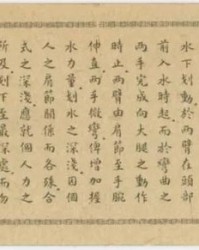 水下划動於兩臂在頭部
前入水時起而於彎曲之
兩手完成向大腿之動作
時止兩臂由肩節至手腕
伸直兩手微彎俾增加握
水力量划水之深淺因個
人之肩節關係而各殊合
式之深淺應就個人之力
所及划下至最深處而勿